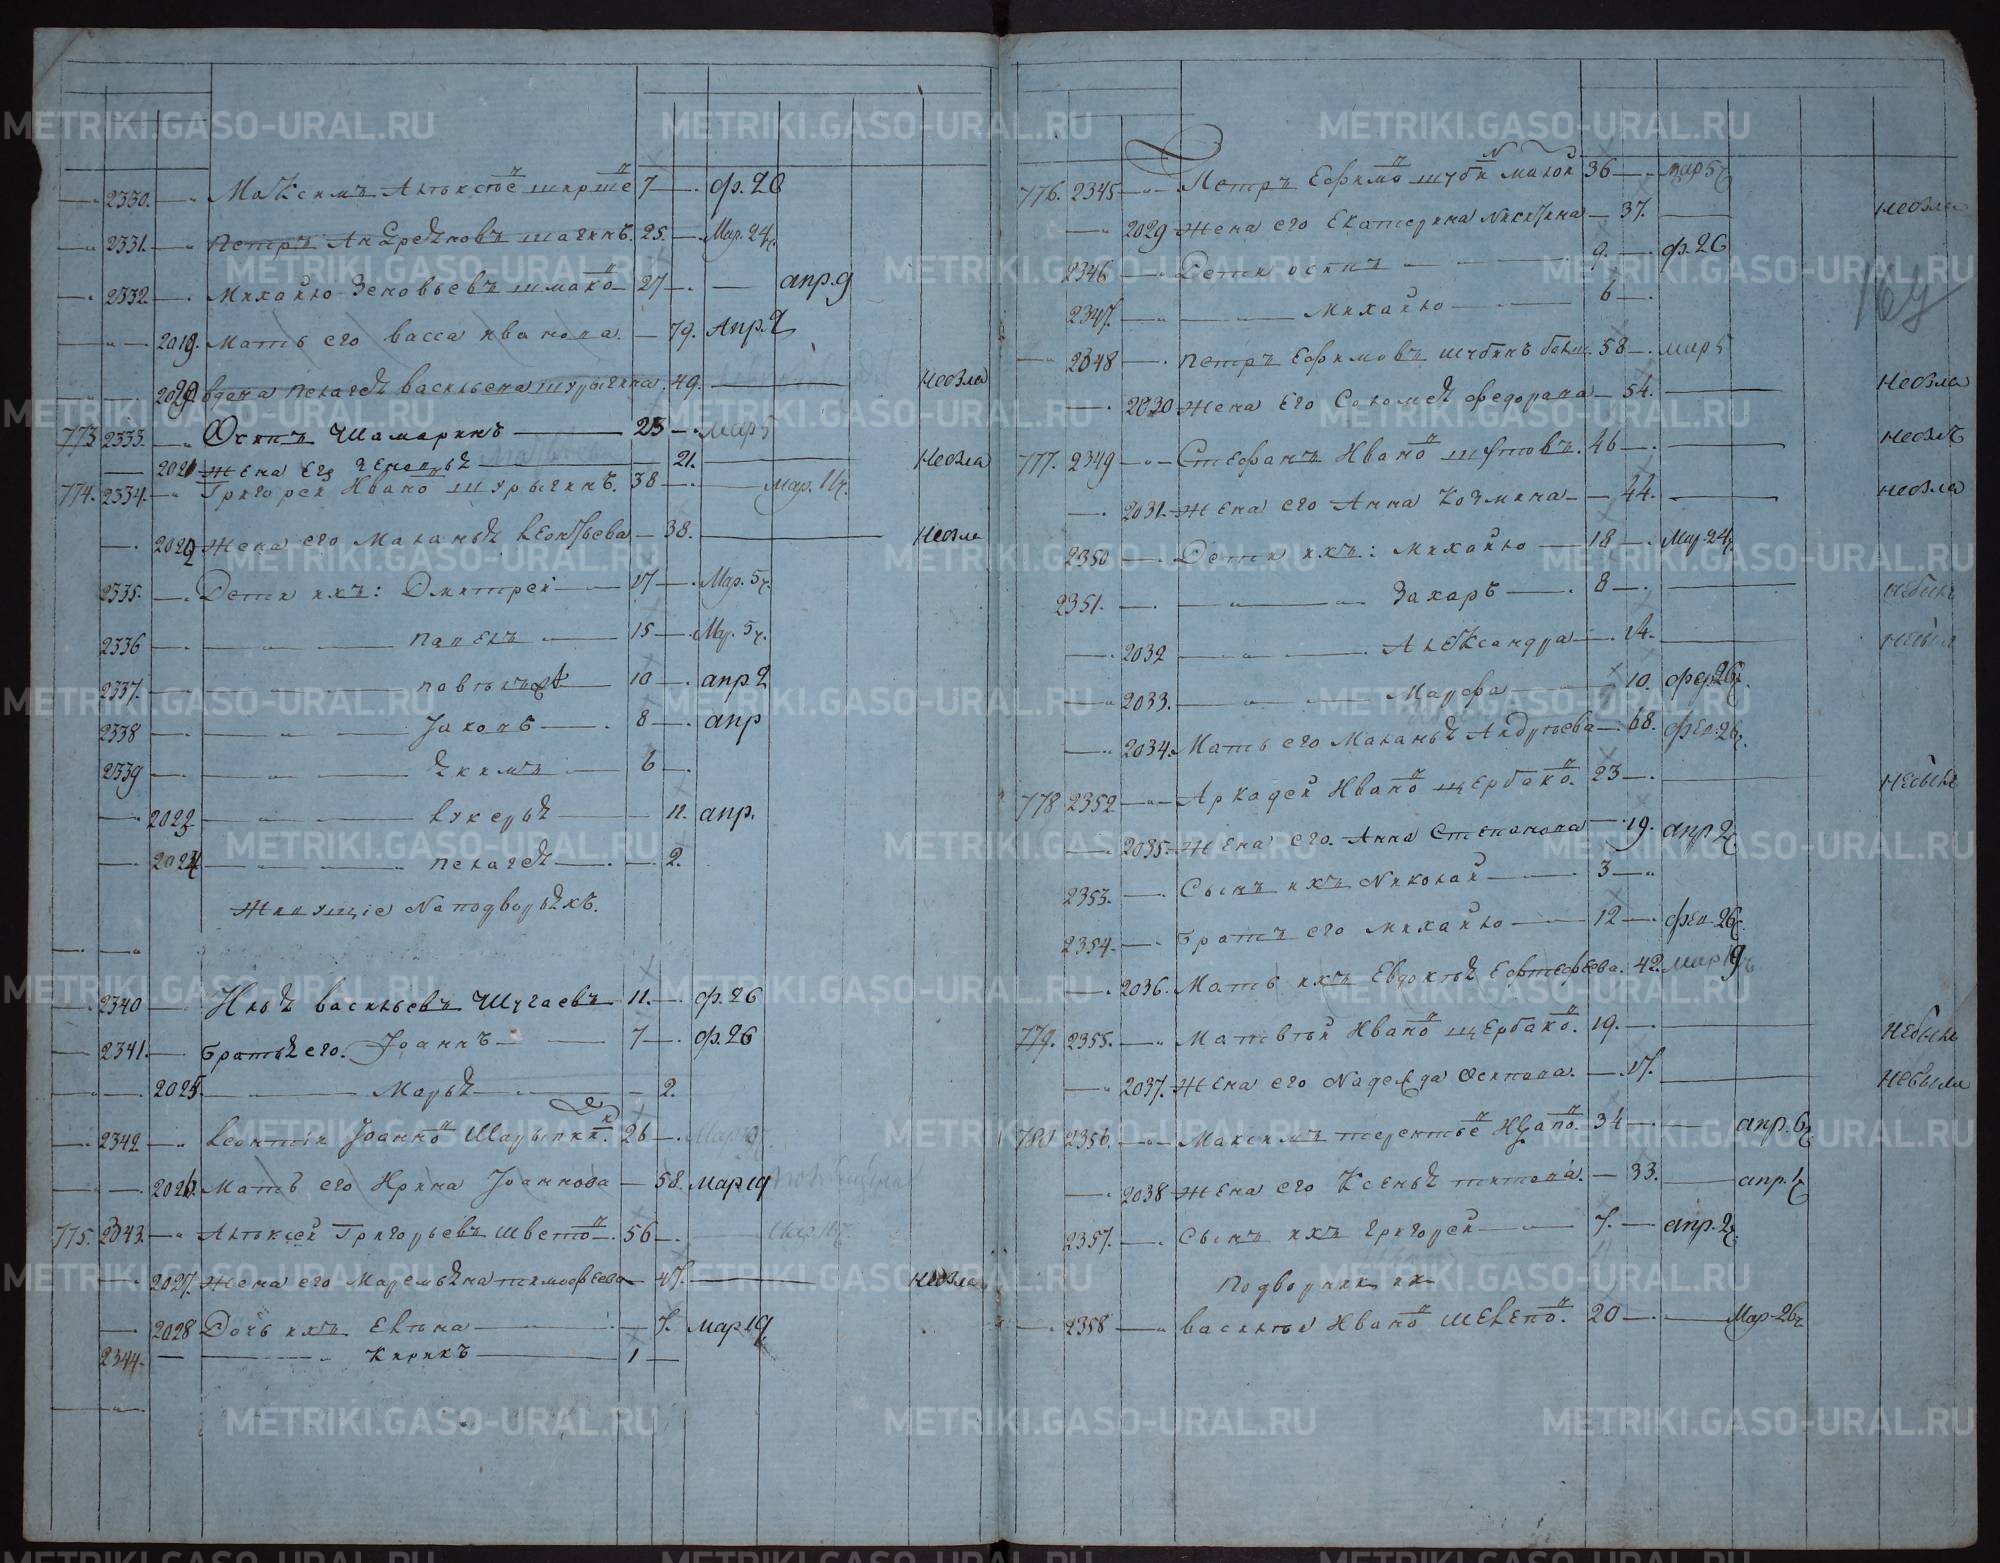 2330. Максимъ Алексѣе ширше 7 ф. 26
2331. Петръ Андреяновъ шагинъ. 25. Мар. 24.
2332 Михайло Зеновьевъ шмако 27 апр. 9
2019. Мать его васса ивано‌ва. 79. Апр. 2
2020 вдова пелагея васильева шурыгина. 49. Небыла
773 2333. Осипъ Шамаринъ 23 Мар 5
2021 жена Его 21. Небыла
774. 2334. Григорей Ивано шурыгинъ. 38 Мар. 12.
2022 жена его Маланья Леонтьева 38. Небыла
2335. Дети ихъ: Дмитрей 17 Мар. 5
2336 павелъ 15 Мар. 5
2337. 10 апр 2
2338 Іаковъ 8 апр
2339 Екимъ 6
2023 Лукерья 11. апр.
2024 пелагея 2.
Живущіе Наподворьяхъ.
2340 Илья васильевъ Шугаевъ 11. ф. 26
2341. братья его. Іоаннъ 7 ф. 26
2025. Марья 2.
2342 Леонтіи Іоанно 26 Мар 19
2026. Мать его Ирина Іоаннова 58. Мар 19
775. 2343. Алексей Григорьевъ швецо 56
2027. жена его Маремьяна тимофеева 47. небыла
2028 Дочь ихъ Елена 7. Мар 19
2344. Кирикъ 1
776. 2345 Петръ Ефимо шуби малой 36 мар 5
2029 жена его Екатерина Никитина 37. небыла
2346 Дети осипъ 9. ф. 26
2347. Михайло 6
2348 петръ Ефимовъ шубинъ болш. 58 мар 5
2030 жена Его Соломея федорова 54. небыла
777. 2349 Стефанъ Ивано шутовъ. 46 небылъ
2031. жена его Анна Козмина 44. небыла
2350 Дети ихъ: михайло 18 Мар. 24
2351. Захаръ 8 небылъ
2032 Александра 14. небыла
2033. Марфа 10. фев 26
2034. Мать его Маланья Андреева 68. фев. 26.
778 2352 Аркадей Ивано щербако. 23 небылъ
2035. жена его. Анна Степанова 19. апр 2
2353. Сынъ ихъ Николай 3
2354. братъ его михайло 12 фев. 26.
2036. Мать ихъ Евдокея Ефтефеева. 42. мар 19
779. 2355. Матвей Ивано щербако. 19. небылъ
2037. жена его Надежда Осипова. 17. небыла
780 2356. Максимъ терентье 34 апр. 6
2038 жена его Ксенья титова. 33. апр.
2357. Сынъ ихъ григорей 7. апр. 2
подворник ки
2358 василеи Ивано шелепо. 20 Мар 26